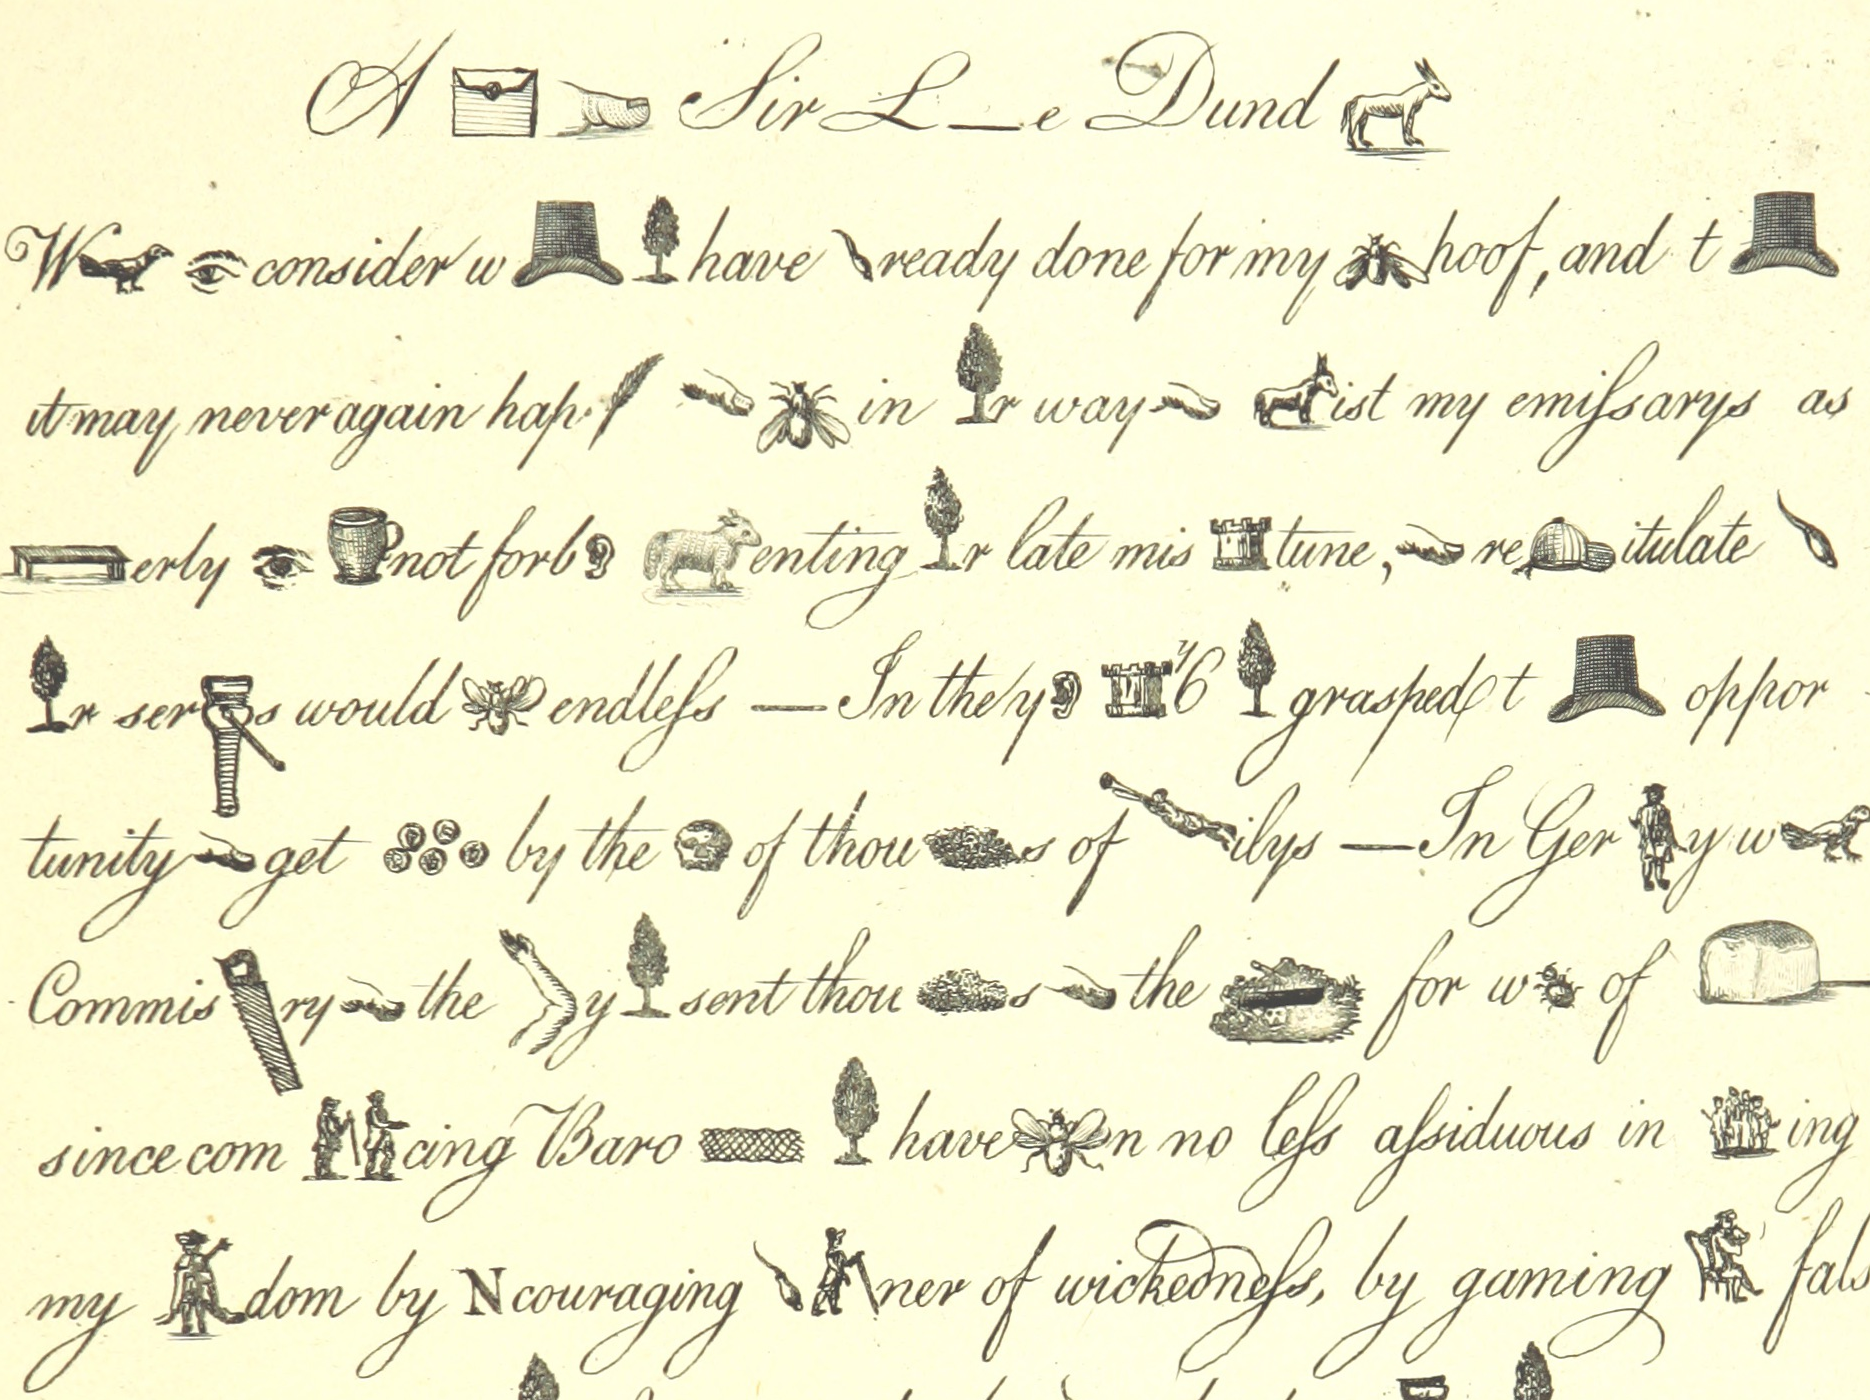 A Sir L__e Dund
W consider w have ready done for my hoof, and t
it may never again hap. in r way ist my emiſsarys as
erly not forb enting r late mis tune, re itulate
r ser s would endleſs — In the y 46 grasped t oppor -
tunity get by the of thou s of ilys — In Ger y w
Commis ry the y sent thou s the for w of
since com cing Baro have n no leſs aſsiduous in ing
my dom by Ncouraging ner of wickedneſs, by gaming fals